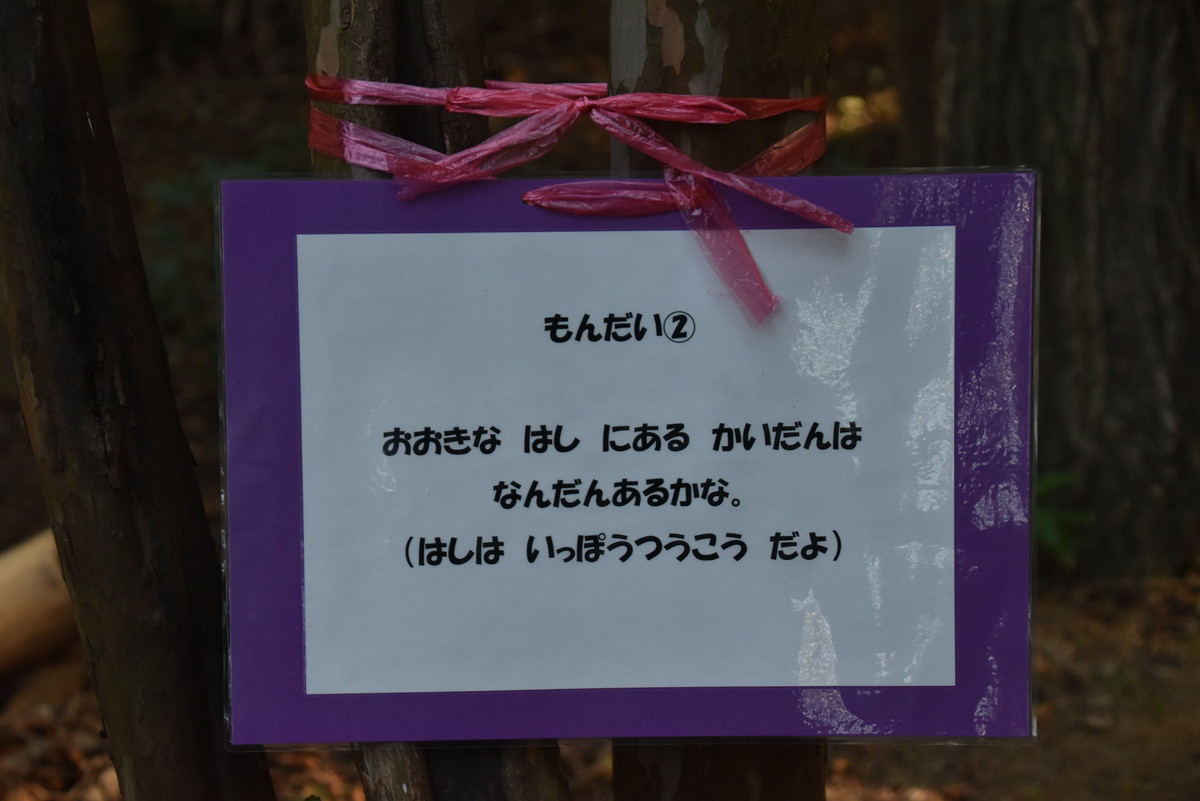 もんだい②
おおきな はし にある かいだんは
なんだんあるかな。
(はしは いっぽうつうこう だよ)